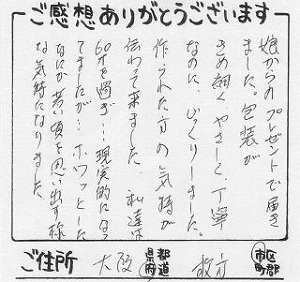 ご感想ありがとうございます
娘からのプレゼントで届き
ました。包装が
きめ細く やさしく、丁寧
なのに、びっくりしました。
作られた方の気持が
伝わって来ました。私達は
60才を過ぎ…現実的になっ
てきましたが… ホワッとした
なにか若い頃を思い出す様
な気持になりました。
ご住所 大阪 都道府県 枚方 市区町郡